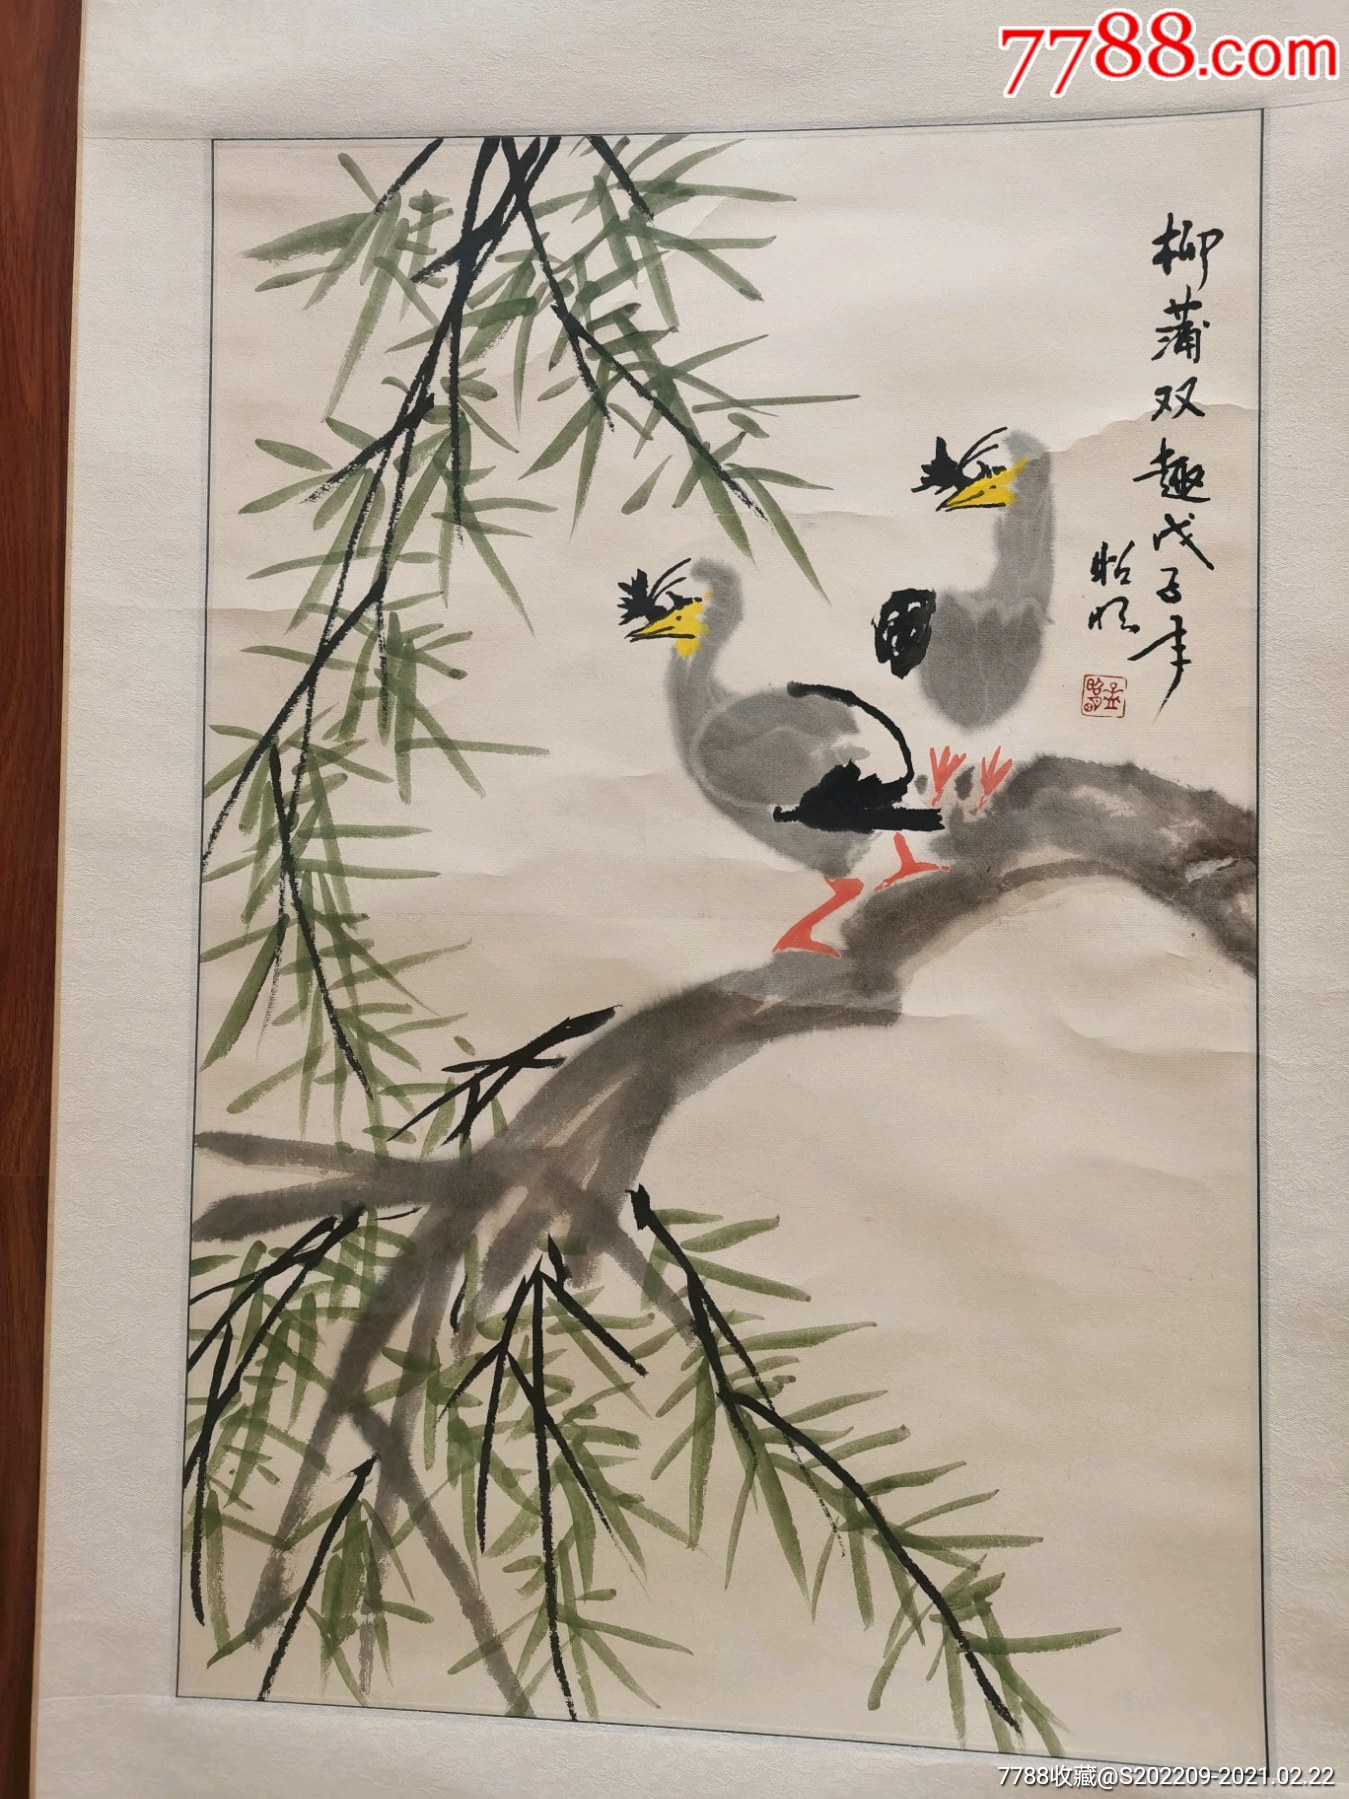 7788.com
柳蒲双趣戊子年
7788收藏@S202209-2021.02.22